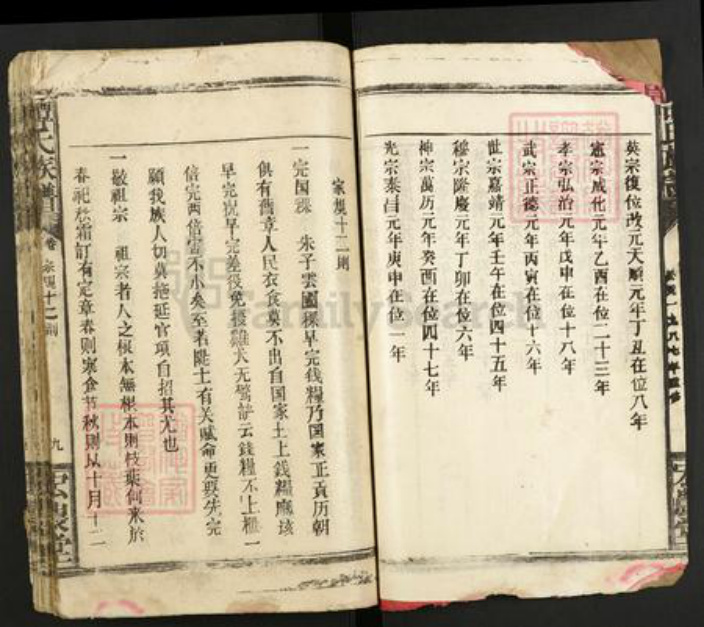 英宗復位改元天順元年丁丑在位八年
憲宗成化元年乙酉在位二十三年
孝宗弘治元年戊申在位十八年
武宗正德元年丙寅在位十六年
世宗嘉靖元年壬午在位四十五年
穆宗隆慶元年丁卯在位六年
神宗萬历元年癸酉在位四十七年
光宗泰昌元年庚申在位一年
家規十二則
一完国課 朱子雲國稞早完钱糧乃国家正貢历朝
俱有舊章人民衣食莫不出自国家土上錢糧應该
早完況早完差役免擾雞犬无驚諺云錢糧不上櫃一
倍完两倍當不小矣至若陞土有关赋命更要先完
願我族人切莫拖延官項自招其尤也
一敬祖宗 祖宗者人之根本無根本則枝葉何来於
春祀秋霜訂有定章春則寒食节秋則以十月十二
氏族譜
卷
家規十二則
九
FamilySearch